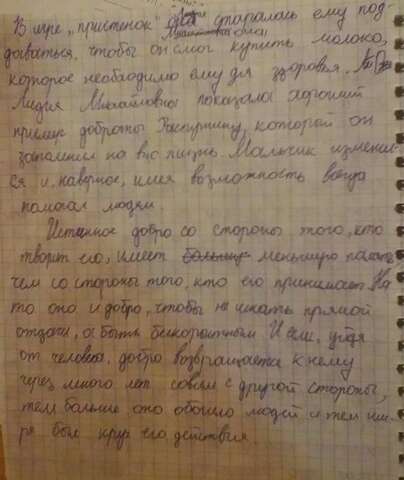 В игре "пристенок" она старалась ему под-
даваться, чтобы он смог купить молоко,
которое необходимо ему для здоровья.
Лидия Михайловна показала хороший
пример доброты Распутину, который он
запомнил на всю жизнь. Мальчик изменил-
ся и, наверное, имея возможность всегда
помогал людям.
Истинное добро со стороны того, кто
творит его, имеет меньшую память,
чем со стороны того, кто его принимает. На
то оно и добро, чтобы не искать прямой
отдачи, а быть бескорыстным. И если, уйдя
от человека, добро возвращается к нему
через много лет совсем с другой стороны,
тем больше, оно обошло людей и тем ши-
ре был круг его действия.